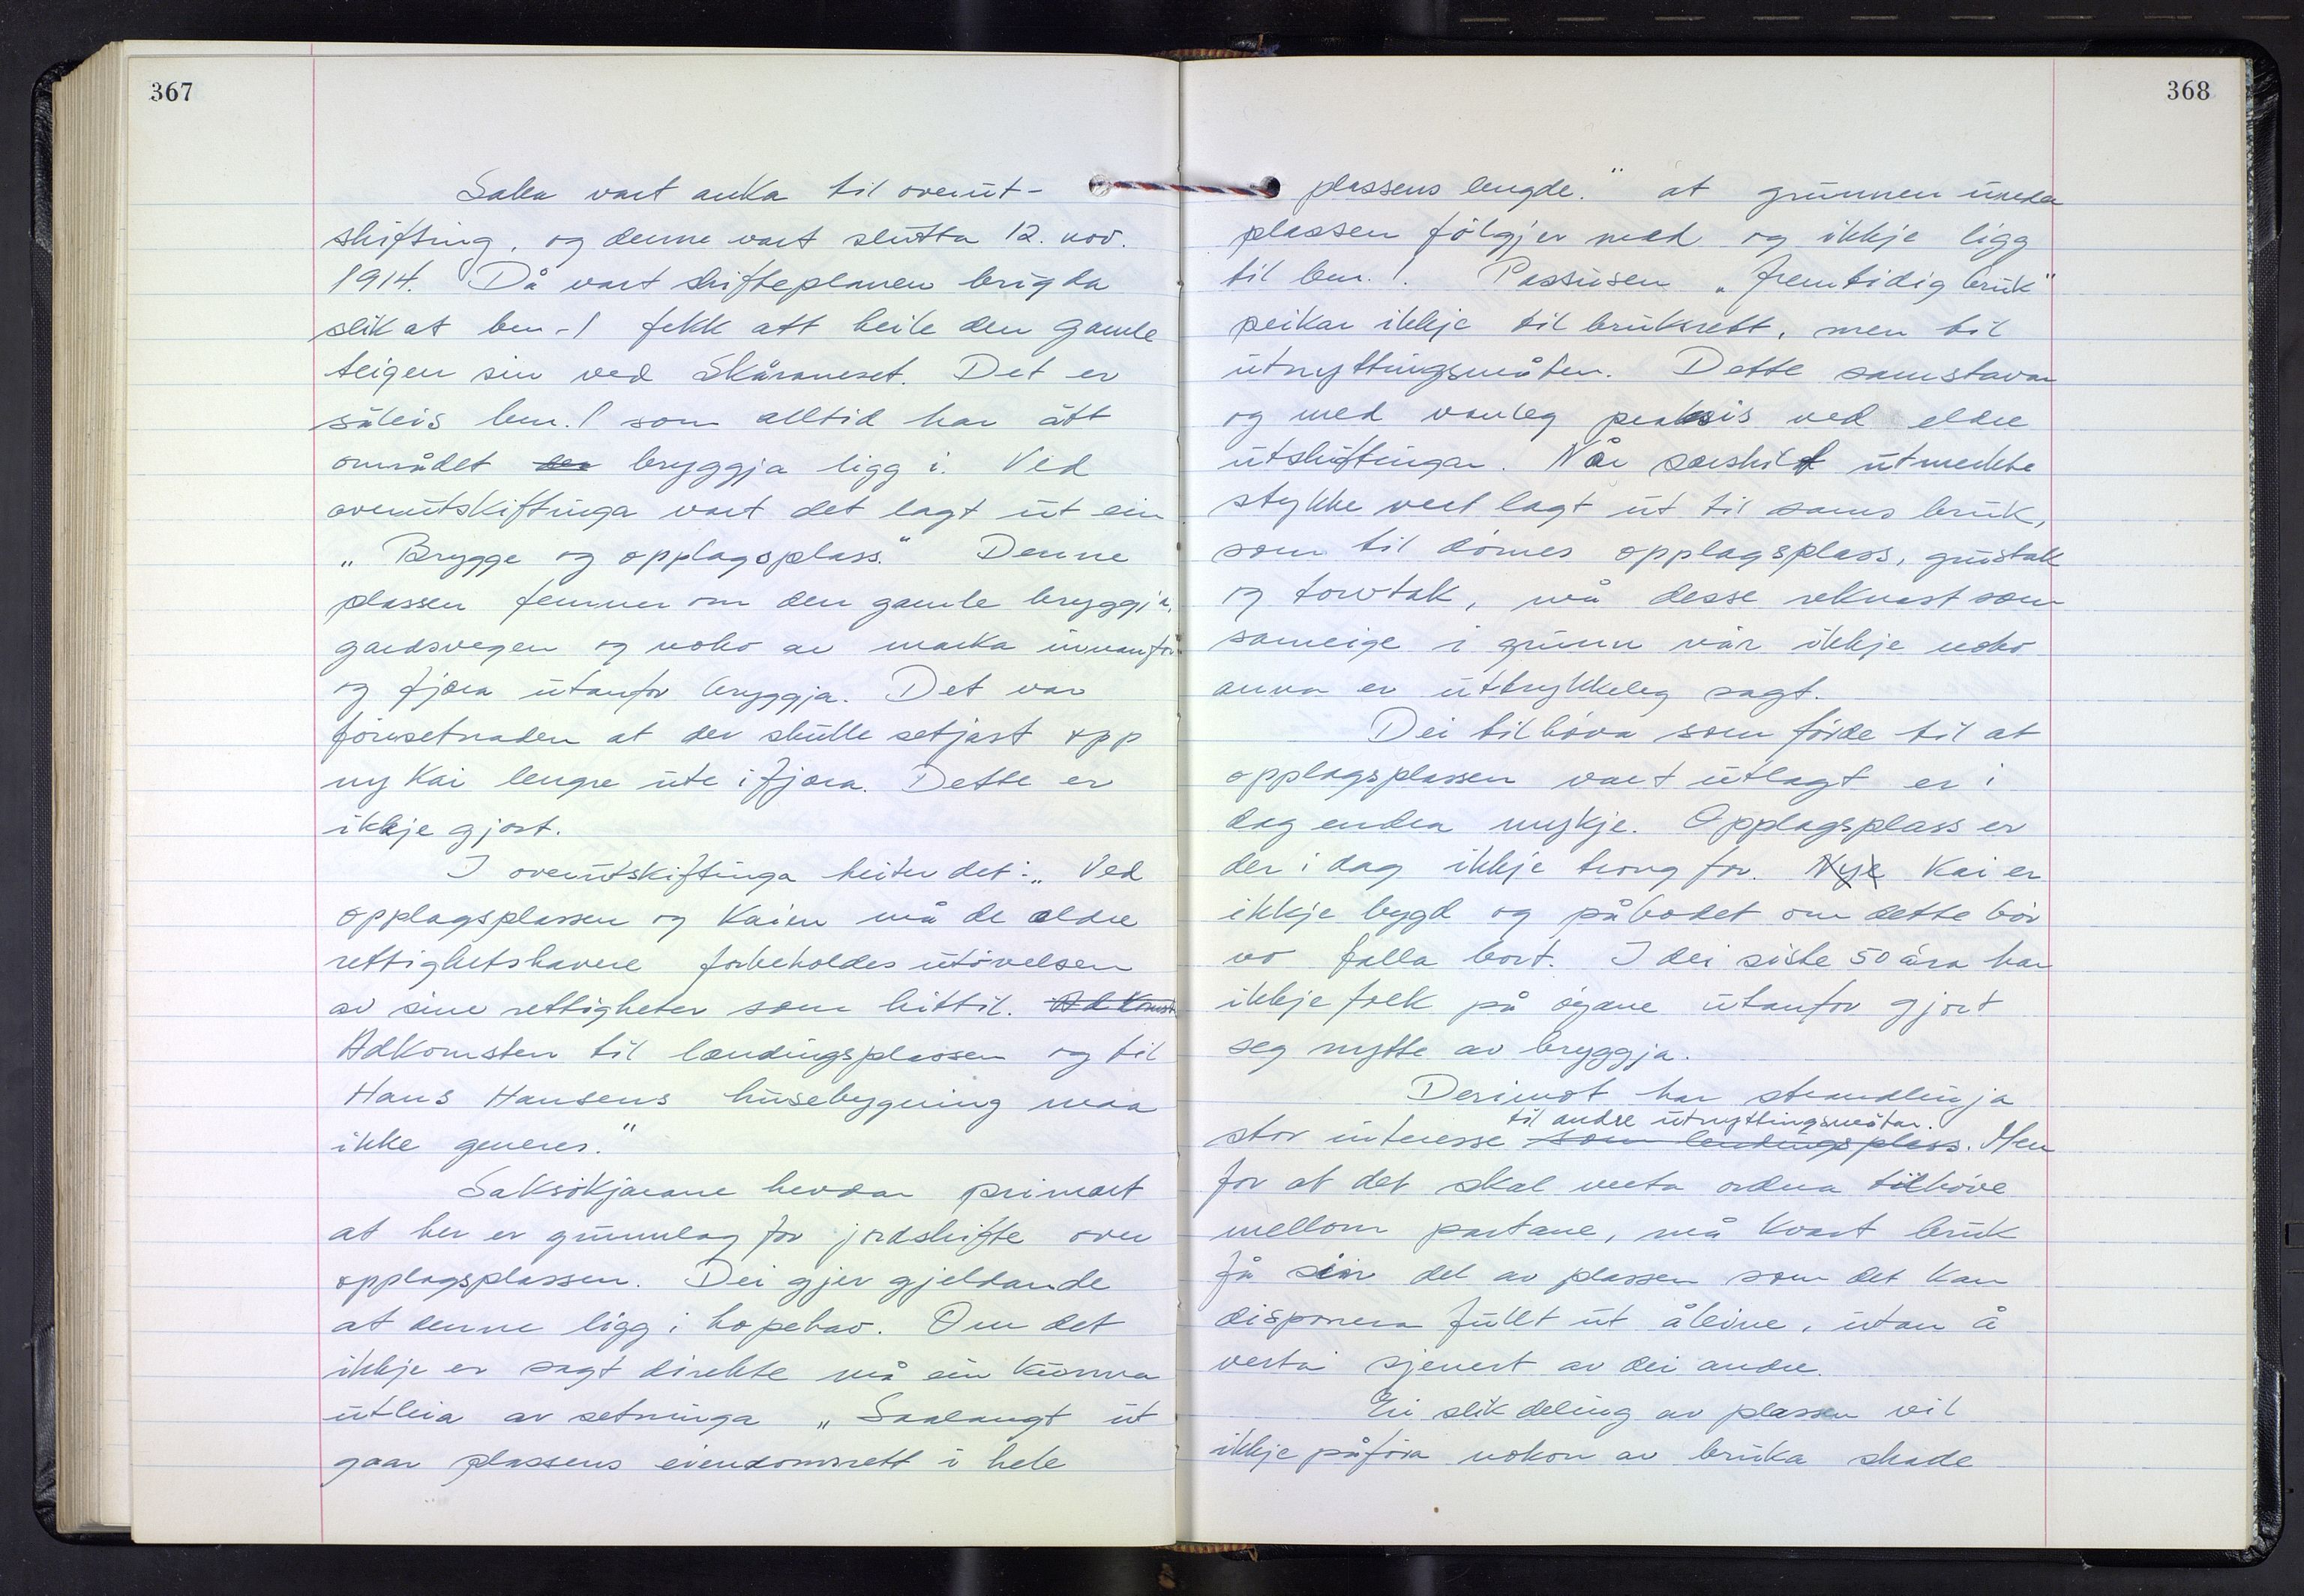 367
Saka vart anka til overut-
skifting, og denne vart slutta 12. nov.
1914. Då vart skifteplanen brigda
slik at bnr. 1 fekk att heile den gamle
teigen sin ved Skåraneset. Det er
såleis bnr. 1 som alltid har ått
området der bryggja ligg i. Ved
overutskiftinga vart det lagt ut ein
„Brygge og opplagsplass." Denne
plassen femner om den gamle bryggja,
gardsvegen og noko av marka innanfor
og fjøra utanfor bryggja. Det var
føresetnaden at der skulle setjast opp
ny kai lengre ute i fjøra. Dette er
ikkje gjort.
I overutskiftinga heiter det: „Ved
opplagsplassen og Kaien må de eldre
rettighetshavere forbeholdes utövelsen
av sine rettigheter som hittil. Adkomst
Adkomsten til landingsplassen og til
Hans Hansens husebygning maa
ikke generes."
Saksökjarane hevdar primært
at her er grunnlag for jordskifte over
opplagsplassen. Dei gjer gjeldande
at denne ligg i hopehav. Om det
ikkje er sagt direkte må ein kunna
utleia av setninga „Saalangt ut
gaar plassens eiendomsrett i hele
368
plassens lengde." at grunnen under
plassen fölgjer med og ikkje ligg
til bnr. 1. Passusen „fremtidig bruk"
peikar ikkje til bruksrett, men til
utnyttingsmåten. Dette samstavar
og med vanleg praksis ved eldre
utskiftingar. Når særskilt utmerkte
stykke vert lagt ut til sams bruk,
som til dömes opplagsplass, grustak
og torvtak, må desse reknast som
sameige i grunn når ikkje noko
anna er uttrykkeleg sagt.
Dei tilhöva som förde til at
opplagsplassen vart utlagt er i
dag endra mykje. Opplagsplass er
der i dag ikkje trong for. Nye Kai er
ikkje bygd og påbodet om dette bör
no falla bort. I dei siste 50 åra har
ikkje folk på öyane utanfor gjort
seg nytte av bryggja.
Derimot har strandlinja
til andre utnyttingsmåtar.
stor interesse som landingsplass. Men
for at det skal verta ordna tilhöve
mellom partane, må kvart bruk
få sin del av plassen som det kan
disponera fullt ut åleine, utan å
verta sjenert av dei andre.
Ei slik deling av plassen vil
ikkje påföra nokon av bruka skade